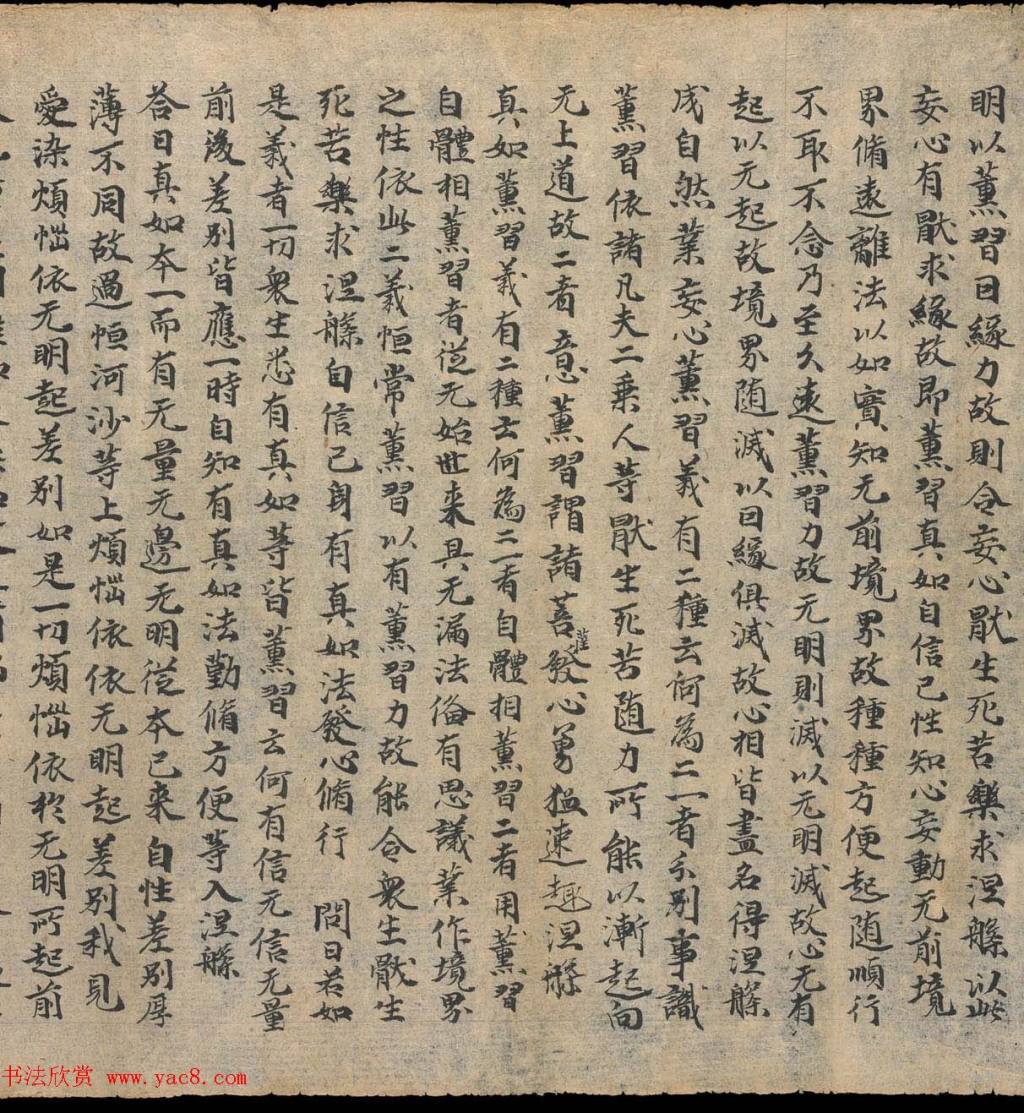 明以薰習因緣力故則令妄心厭生死苦樂求涅槃以此
妄心有厭求緣故即薰習真如自信己性知心妄動无前境
界脩遠離法以如實知无前境界故種種方便起随順行
不取不念乃至久遠薰習力故无明則滅以无明滅故心无有
起以无起故境界随滅以因緣俱滅故心相皆盡名得涅槃
成自然業妄心薰習義有二種云何為二一者分別事識
薰習依諸凡夫二乗人等厭生死苦随力所能以漸起向
无上道故二者意薰習謂諸菩薩發心勇猛速趣涅槃
真如薰習義有二種云何為二一者自體相薰習二者用薰習
自體相薰習者從无始世来具无漏法俻有思議業作境界
之性依此二義恒常薰習以有薰習力故能令衆生厭生
死苦樂求涅槃自信己身有真如法發心脩行 問曰若如
是義者一切衆生悉有真如等皆薰習云何有信无信无量
前後差別皆應一時自知有真如法勤脩方便等入涅槃
荅曰真如本一而有无量无邊无明從本已来自性差別厚
薄不同故過恒河沙等上煩惱依依无明起差別我見
愛染煩惱依无明起差別如是一切煩惱依於无明所起前
书法欣赏 www.yac8.com